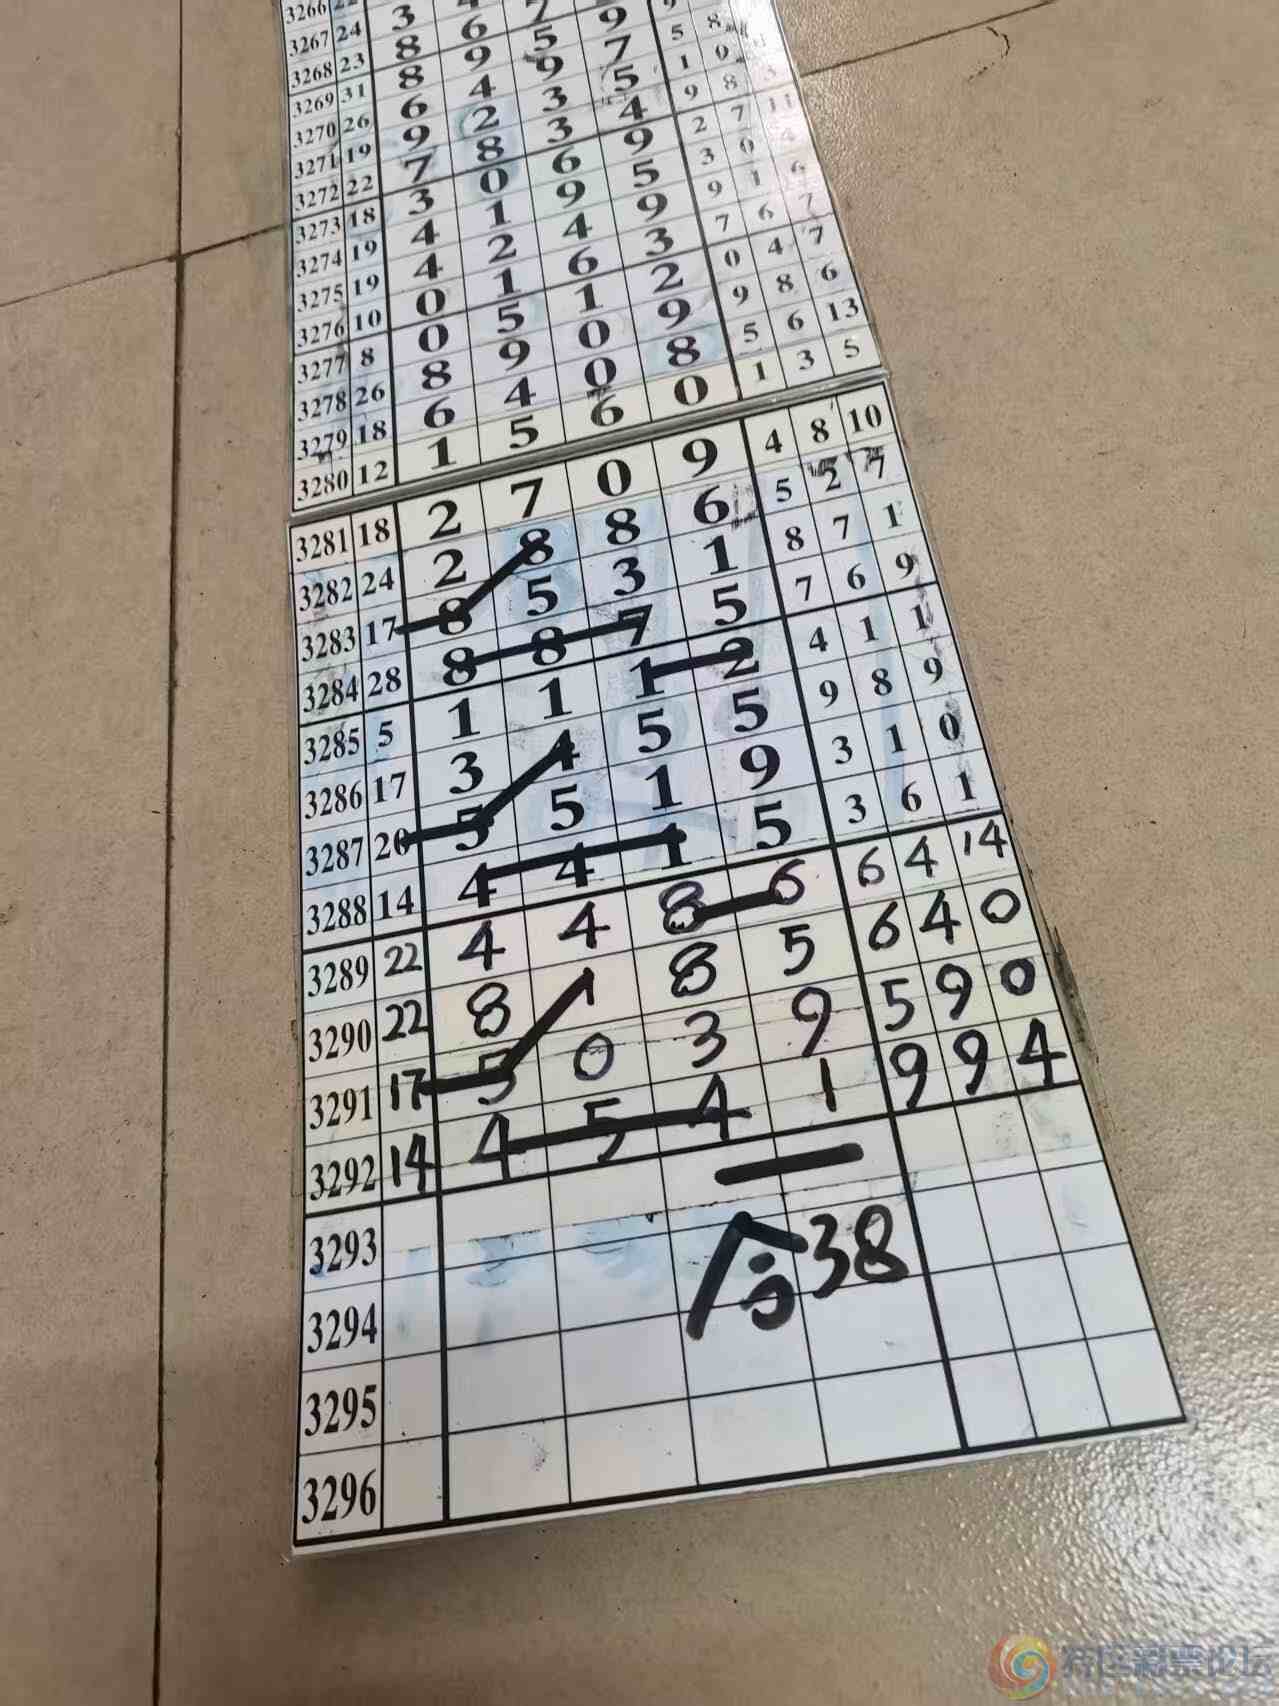 3266 22 3 4 7 9
3267 24 8 6 5 9 5 8
3268 23 8 9 9 7 1 0
3269 31 6 4 3 5 9 8 3
3270 26 9 2 3 4 2 7 11
3271 19 7 8 6 9 3 0 4
3272 22 3 0 9 5 9 1 6
3273 18 4 1 4 9 7 6 7
3274 19 4 2 6 3 0 4 7
3275 19 0 1 1 2 9 8 6
3276 10 0 5 0 9 5 6 13
3277 8 8 9 0 8 1 3 5
3278 26 6 4 6 0
3279 18 1 5
3280 12
3281 18 2 7 0 9 4 8 10
3282 24 2 8 8 6 5 2 7
3283 17 8 5 3 1 8 7 1
3284 28 8 8 7 5 7 6 9
3285 5 1 1 1 2 4 1 1
3286 17 3 4 5 5 9 8 9
3287 20 5 5 1 9 3 1 0
3288 14 4 4 1 5 3 6 1
3289 22 4 4 8 6 6 4 14
3290 22 8 1 8 5 6 4 0
3291 17 5 0 3 9 5 9 0
3292 14 4 5 4 1 9 9 4
3293
合38
3294
3295
3296